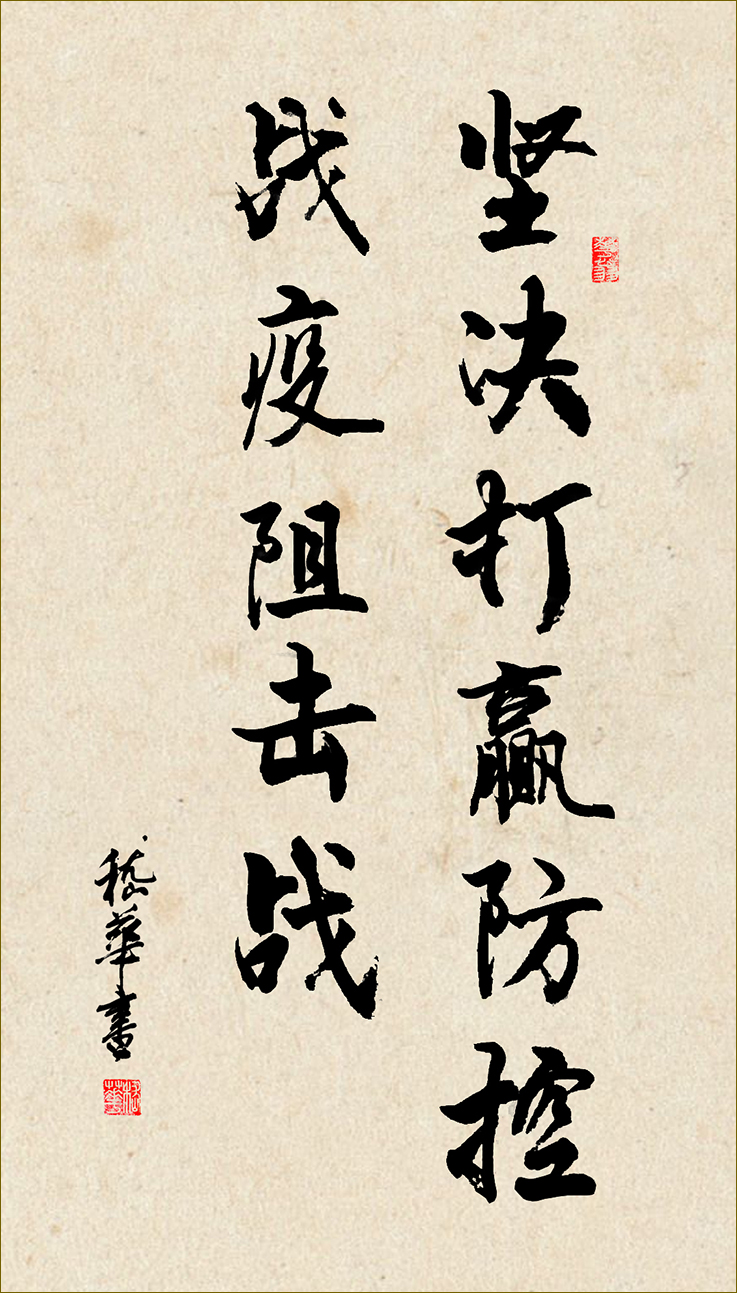 坚决打赢防控
战疫阻击战
嵇華書
嵇華